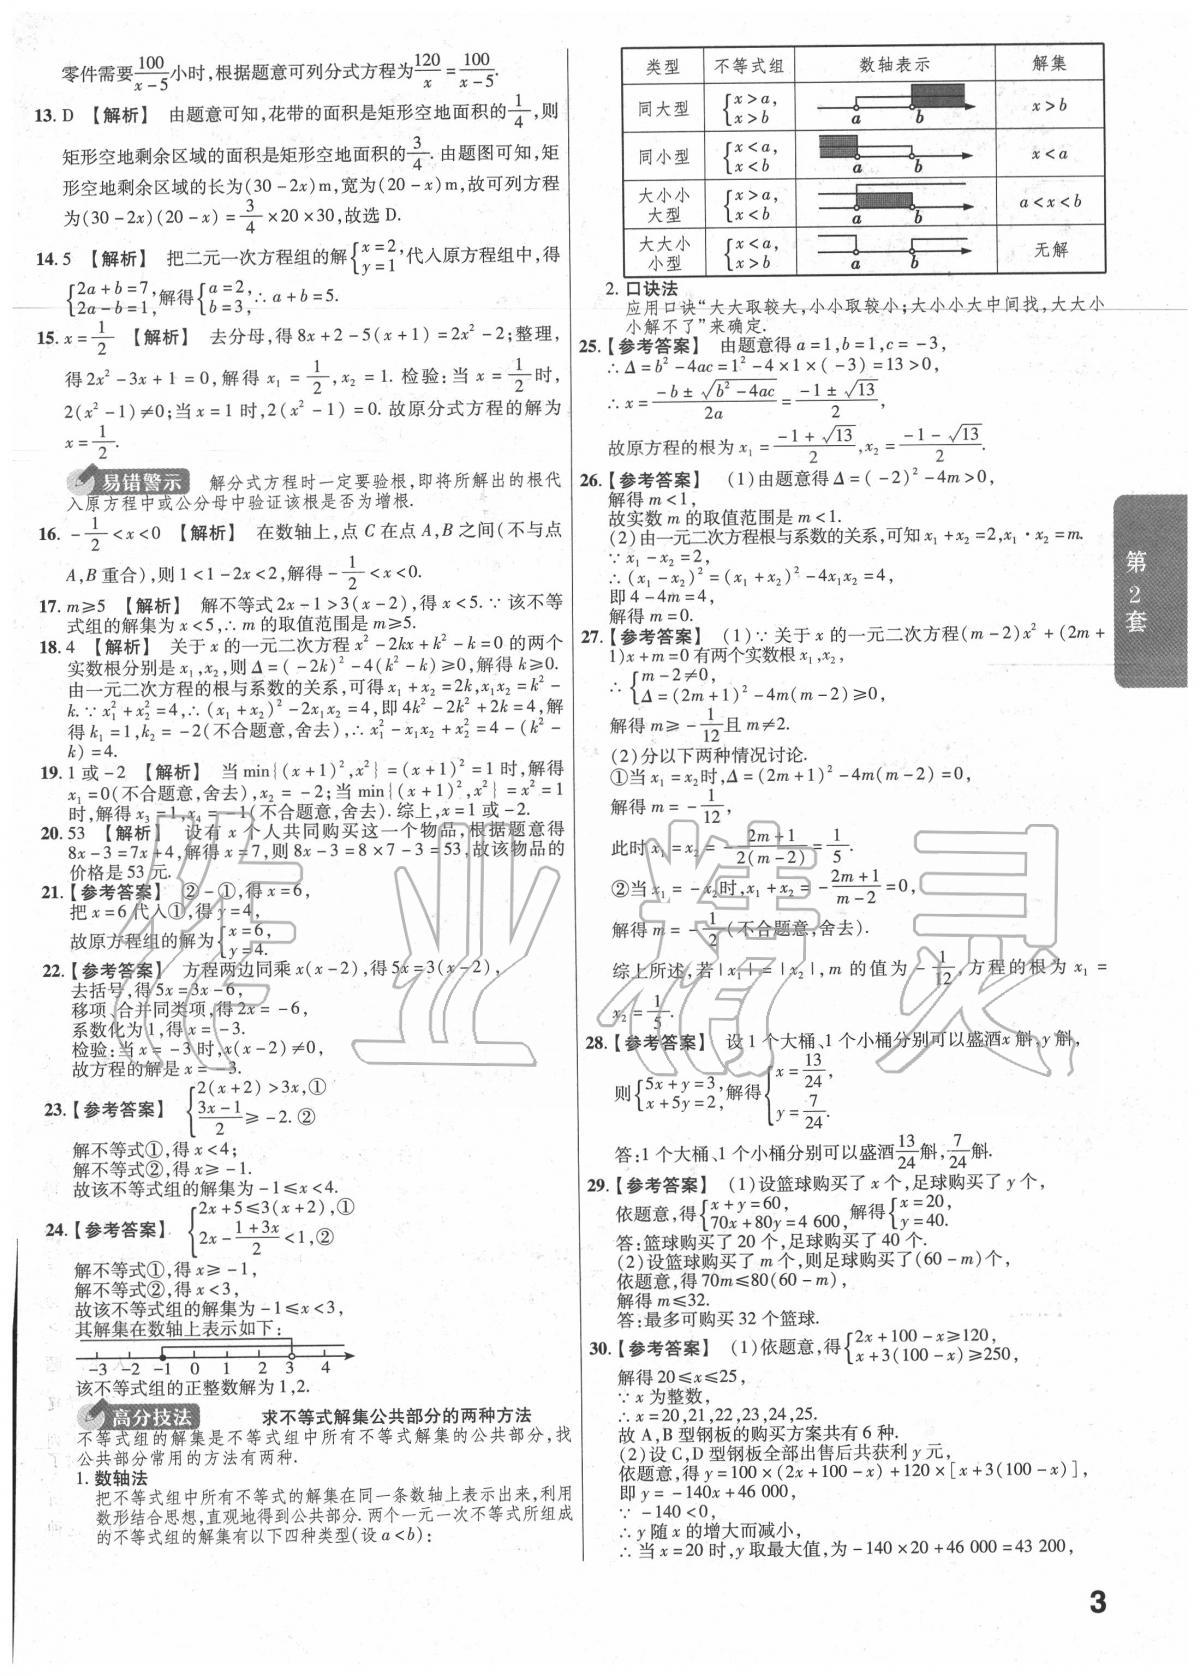 零件需要100/(x-5)小时,根据题意可列分式方程为120/x=100/(x-5).
13. D 【解析】 由题意可知,花带的面积是矩形空地面积的1/4,则
矩形空地剩余区域的面积是矩形空地面积的3/4.由题图可知,矩
形空地剩余区域的长为(30-2x)m,宽为(20-x)m,故可列方程
为(30-2x)(20-x)=3/4×20×30,故选D.
14. 5 【解析】 把二元一次方程组的解{x=2, y=1,代入原方程组中,得
{2a+b=7, 2a-b=1,解得{a=2, b=3,∴a+b=5.
15. x=1/2 【解析】 去分母,得8x+2-5(x+1)=2x²-2;整理,
得2x²-3x+1=0,解得x₁=1/2,x₂=1.检验:当x=1/2时,
2(x²-1)≠0;当x=1时,2(x²-1)=0.故原分式方程的解为
x=1/2.
易错警示 解分式方程时一定要验根,即将所解出的根代
入原方程中或公分母中验证该根是否为增根.
16. -1/2<x<0 【解析】 在数轴上,点C在点A,B之间(不与点
A,B重合),则1<1-2x<2,解得-1/2<x<0.
17. m≥5 【解析】 解不等式2x-1>3(x-2),得x<5.∵该不等
式组的解集为x<5,∴m的取值范围是m≥5.
18. 4 【解析】 关于x的一元二次方程x²-2kx+k²-k=0的两个
实数根分别是x₁,x₂,则Δ=(-2k)²-4(k²-k)≥0,解得k≥0.
由一元二次方程的根与系数的关系,可得x₁+x₂=2k,x₁x₂=k²-
k.∵x₁²+x₂²=4,∴(x₁+x₂)²-2x₁x₂=4,即4k²-2k²+2k=4,解
得k₁=1,k₂=-2(不合题意,舍去),∴x₁²-x₁x₂+x₂²=4-(k²-
k)=4.
19. 1或-2 【解析】 当min{(x+1)²,x²}=(x+1)²=1时,解得
x₁=0(不合题意,舍去),x₂=-2;当min{(x+1)²,x²}=x²=1
时,解得x₃=1,x₄=-1(不合题意,舍去).综上,x=1或-2.
20. 53 【解析】 设有x个人共同购买这一个物品,根据题意得
8x-3=7x+4,解得x=7,则8x-3=8×7-3=53,故该物品的
价格是53元.
21.【参考答案】 ②-①,得x=6,
把x=6代入①,得y=4,
故原方程组的解为{x=6, y=4.
22.【参考答案】 方程两边同乘x(x-2),得5x=3(x-2),
去括号,得5x=3x-6,
移项、合并同类项,得2x=-6,
系数化为1,得x=-3.
检验:当x=-3时,x(x-2)≠0,
故方程的解是x=-3.
23.【参考答案】 {2(x+2)>3x,① (3x-1)/2≥-2.②
解不等式①,得x<4;
解不等式②,得x≥-1.
故该不等式组的解集为-1≤x<4.
24.【参考答案】 {2x+5≤3(x+2),① 2x-(1+3x)/2<1,②
解不等式①,得x≥-1,
解不等式②,得x<3,
故该不等式组的解集为-1≤x<3,
其解集在数轴上表示如下:
-3 -2 -1 0 1 2 3 4
该不等式组的正整数解为1,2.
高分技法 求不等式解集公共部分的两种方法
不等式组的解集是不等式组中所有不等式解集的公共部分,找
公共部分常用的方法有两种.
1. 数轴法
把不等式组中所有不等式的解集在同一条数轴上表示出来,利用
数形结合思想,直观地得到公共部分.两个一元一次不等式所组成
的不等式组的解集有以下四种类型(设a<b):
类型 不等式组 数轴表示 解集
同大型 {x>a, x>b a b x>b
同小型 {x<a, x<b a b x<a
大小小大型 {x>a, x<b a b a<x<b
大大小小型 {x<a, x>b a b 无解
2. 口诀法
应用口诀“大大取较大,小小取较小;大小小大中间找,大大小
小解不了”来确定.
25.【参考答案】 由题意得a=1,b=1,c=-3,
∴Δ=b²-4ac=1²-4×1×(-3)=13>0,
∴x=(-b±√(b²-4ac))/2a=(-1±√13)/2,
故原方程的根为x₁=(-1+√13)/2,x₂=(-1-√13)/2.
26.【参考答案】 (1)由题意得Δ=(-2)²-4m>0,
解得m<1,
故实数m的取值范围是m<1.
(2)由一元二次方程根与系数的关系,可知x₁+x₂=2,x₁·x₂=m.
∵x₁-x₂=2,
∴(x₁-x₂)²=(x₁+x₂)²-4x₁x₂=4,
即4-4m=4,
解得m=0.
27.【参考答案】 (1)∵关于x的一元二次方程(m-2)x²+(2m+
1)x+m=0有两个实数根x₁,x₂,
∴{m-2≠0, Δ=(2m+1)²-4m(m-2)≥0,
解得m≥-1/12且m≠2.
(2)分以下两种情况讨论.
①当x₁=x₂时,Δ=(2m+1)²-4m(m-2)=0,
解得m=-1/12,
此时x₁=x₂=-(2m+1)/2(m-2)=1/5.
②当x₁=-x₂时,x₁+x₂=-(2m+1)/(m-2)=0,
解得m=-1/2(不合题意,舍去).
综上所述,若|x₁|=|x₂|,m的值为-1/12,方程的根为x₁=
x₂=1/5.
28.【参考答案】 设1个大桶、1个小桶分别可以盛酒x斛,y斛,
则{5x+y=3, x+5y=2,解得{x=13/24, y=7/24.
答:1个大桶、1个小桶分别可以盛酒13/24斛,7/24斛.
29.【参考答案】 (1)设篮球购买了x个,足球购买了y个,
依题意,得{x+y=60, 70x+80y=4 600,解得{x=20, y=40.
答:篮球购买了20个,足球购买了40个.
(2)设篮球购买了m个,则足球购买了(60-m)个,
依题意,得70m≤80(60-m),
解得m≤32.
答:最多可购买32个篮球.
30.【参考答案】 (1)依题意,得{2x+100-x≥120, x+3(100-x)≥250,
解得20≤x≤25,
∵x为整数,
∴x=20,21,22,23,24,25.
故A,B型钢板的购买方案共有6种.
(2)设C,D型钢板全部出售后共获利y元,
依题意,得y=100×(2x+100-x)+120×[x+3(100-x)],
即y=-140x+46 000,
∵-140<0,
∴y随x的增大而减小,
∴当x=20时,y取最大值,为-140×20+46 000=43 200,
第2套
3
作业精灵